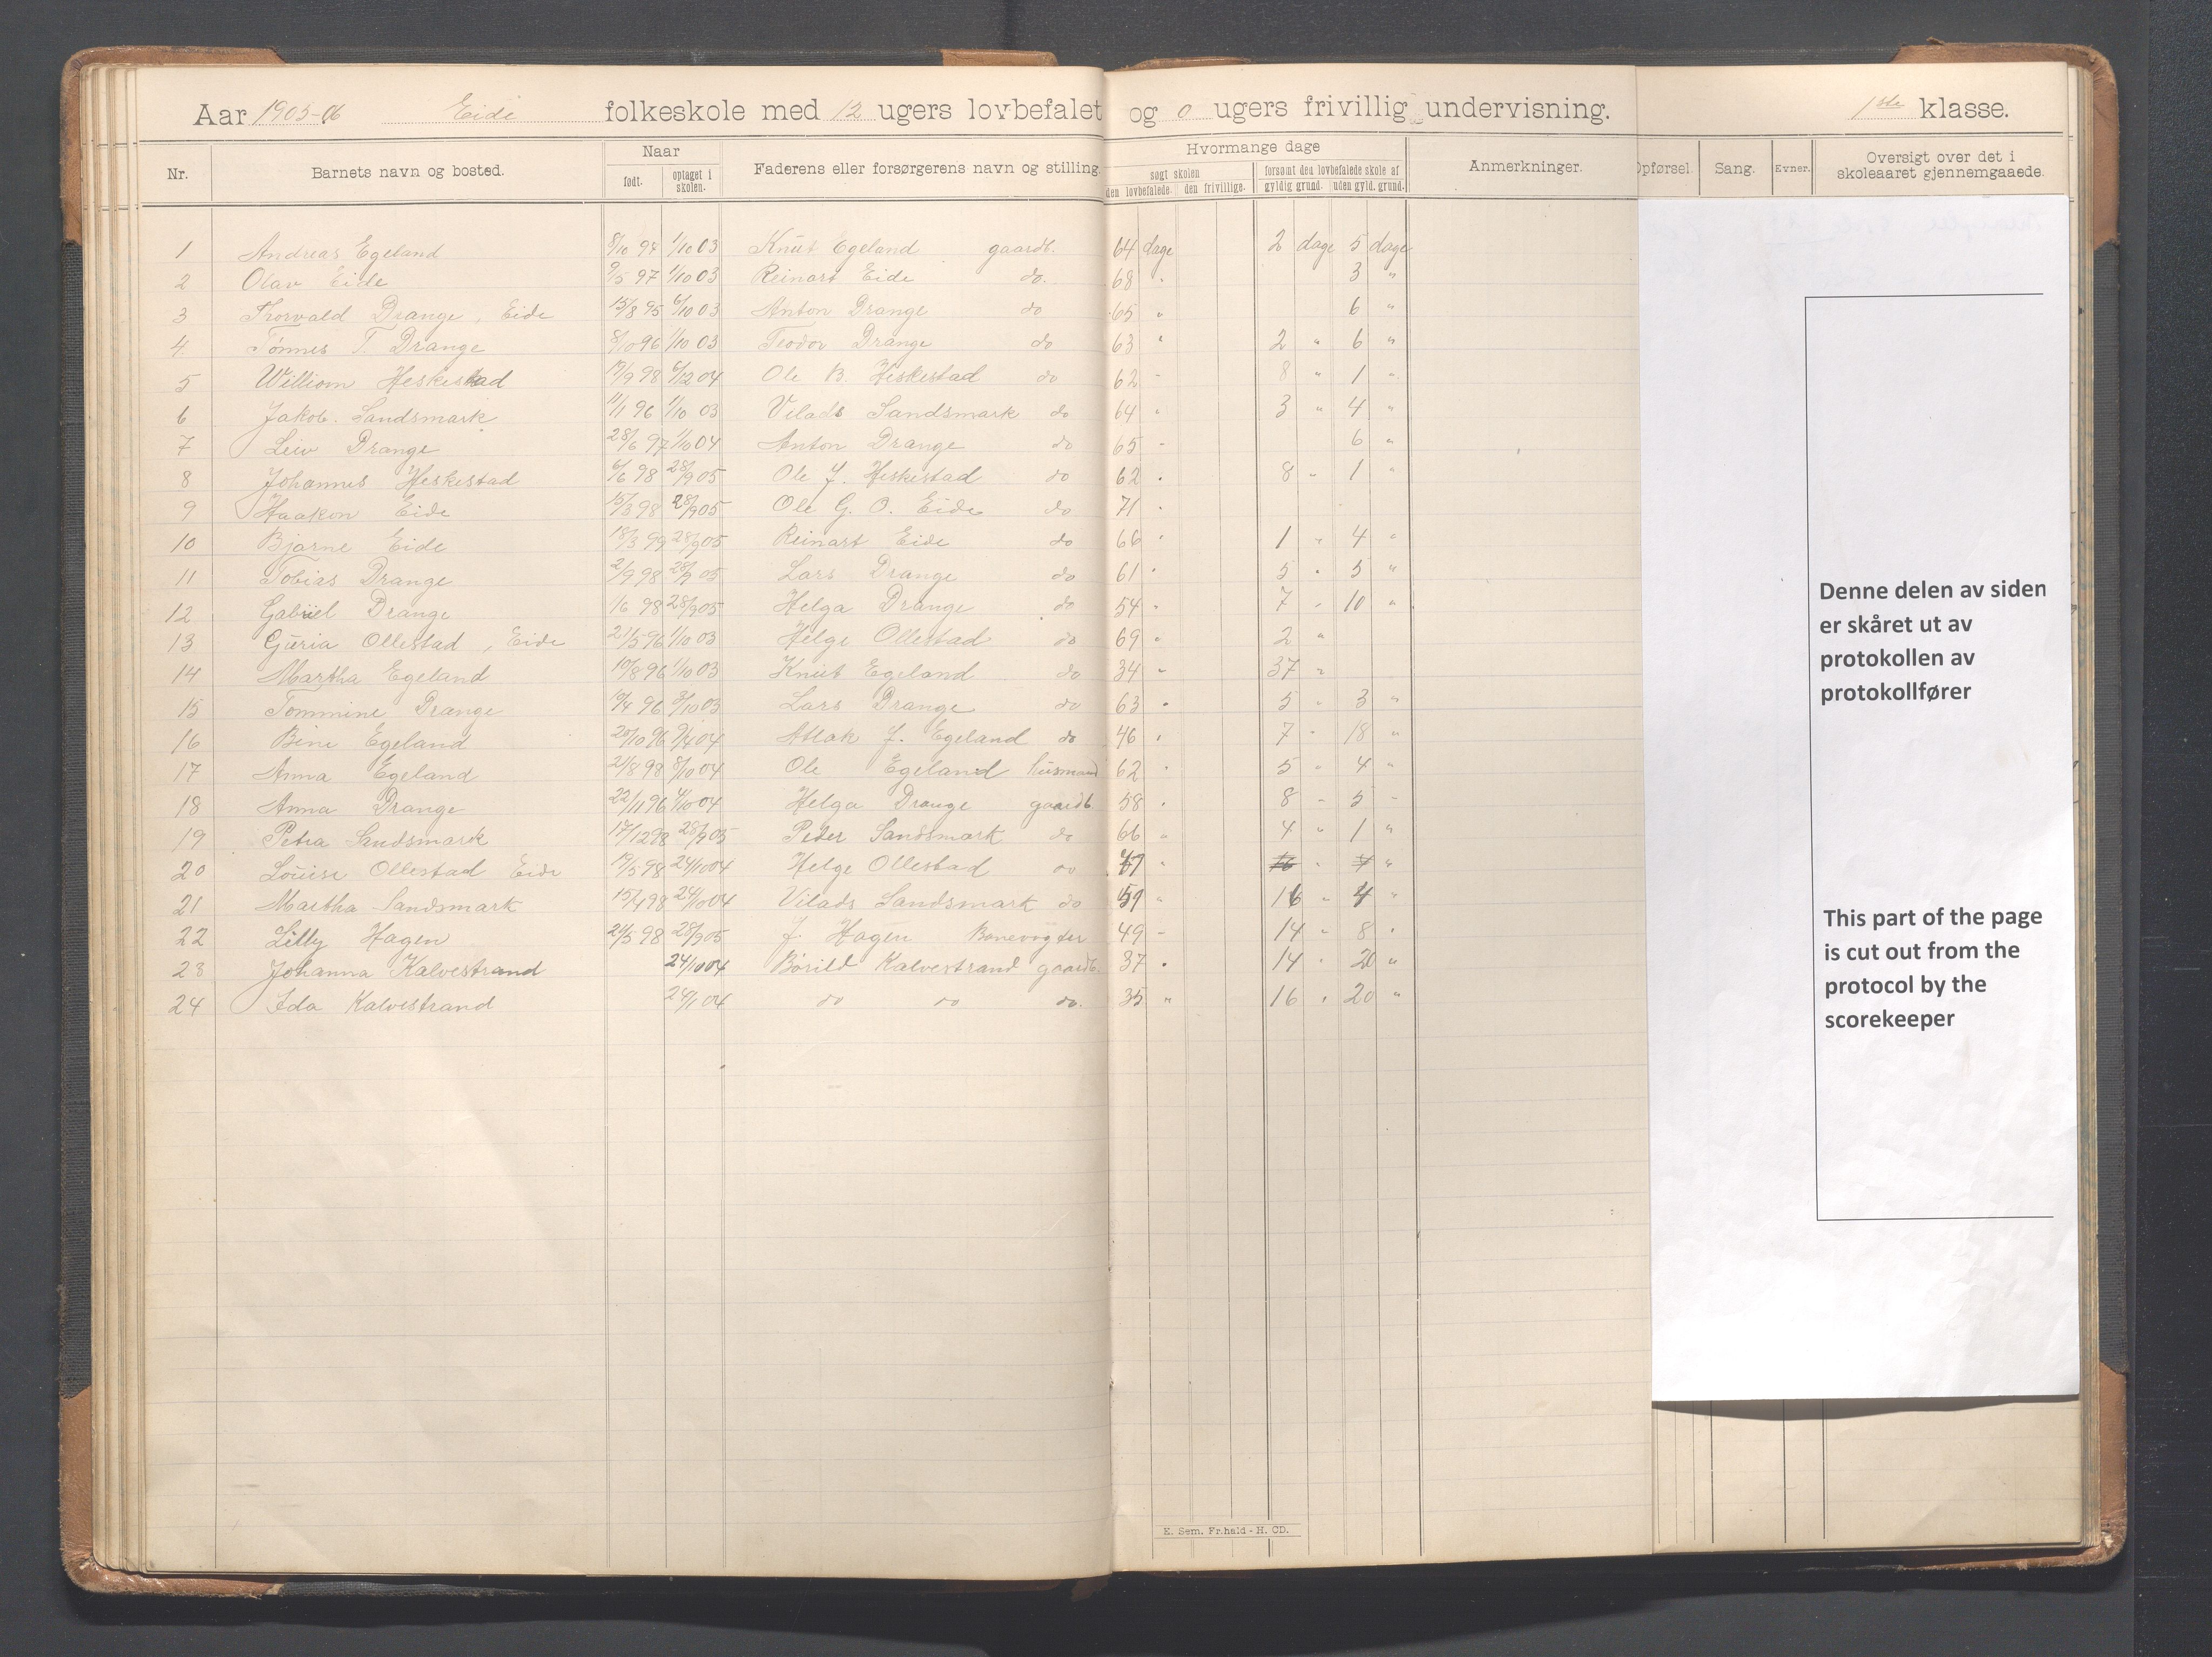 Aar 1905-06 Eide folkeskole med 12 ugers lovbefalet og 0 ugers frivillig undervisning. 1ste klasse.
Nr. Barnets navn og bosted. Naar født. optaget i skolen. Faderens eller forsørgerens navn og stilling. Hvormange dage søgt skolen den lovbefalede. den frivillige. forsømt den lovbefalede skole af gyldig grund. uden gyld. grund. Anmerkninger. Opførsel. Sang. Evner. Oversigt over det i skoleaaret gjennemgaaede.
1 Andreas Egeland 8/10 94 1/10 03 Knut Egeland gaardb. 64 dage 2 dage 5 dage
2 Olav Eide 9/5 97 1/10 03 Reinart Eide do. 68 " 3 "
3 Thorvald Drange, Eide 15/8 95 6/10 03 Anton Drange do 65 " 6 "
4 Tønnes T. Drange 8/10 96 1/10 03 Teodor Drange do 63 " 2 " 6 "
5 William Heskestad 19/9 98 6/12 04 Ole B. Heskestad do 62 " 8 " 1 "
6 Jakob Sandsmark 11/1 96 1/10 03 Vilads Sandsmark do 64 " 3 " 4 "
7 Leiv Drange 28/6 97 1/10 04 Anton Drange do 65 " 6 "
8 Johannes Heskestad 6/6 98 28/9 05 Ole J. Heskestad do 62 " 8 " 1 "
9 Haakon Eide 15/3 98 28/9 05 Ole G. O. Eide do 71 "
10 Bjarne Eide 18/3 99 28/9 05 Reinart Eide do 66 " 1 " 4 "
11 Tobias Drange 2/9 98 28/9 05 Lars Drange do 61 " 5 " 5 "
12 Gabriel Drange 1/6 98 28/9 05 Helga Drange do 54 " 7 " 10 "
13 Guria Ollestad, Eide 21/5 96 1/10 03 Helge Ollestad do 69 " 2 "
14 Martha Egeland 10/8 96 1/10 03 Knut Egeland do 34 " 37 "
15 Tommine Drange 19/4 96 3/10 03 Lars Drange do 63 " 5 " 3 "
16 Bine Egeland 20/10 96 9/4 04 Atlak J. Egeland do 46 " 7 " 18 "
17 Anna Egeland 21/8 98 8/10 04 Ole Egeland husmand 62 " 5 " 4 "
18 Anna Drange 22/11 96 4/10 04 Helga Drange gaardb. 58 " 8 " 5 "
19 Petra Sandsmark 17/12 98 28/9 05 Peder Sandsmark do 66 " 4 " 1 "
20 Louise Ollestad Eide 19/5 98 24/10 04 Helge Ollestad do "
21 Martha Sandsmark 15/4 98 24/10 04 Vilads Sandsmark do 59 " 16 " 4 "
22 Lilly Hagen 24/5 98 28/9 05 J. Hagen Banevogter 49 " 14 " 8 "
23 Johanna Kalvestrand 24/10 04 Børild Kalvestrand gaardb. 37 " 14 " 20 "
24 Ida Kalvestrand 24/1 04 do do do. 35 " 16 " 20 "
Denne delen av siden
er skåret ut av
protokollen av
protokollfører
This part of the page
is cut out from the
protocol by the
scorekeeper
E. Sem. Fr.hald - H. CD.